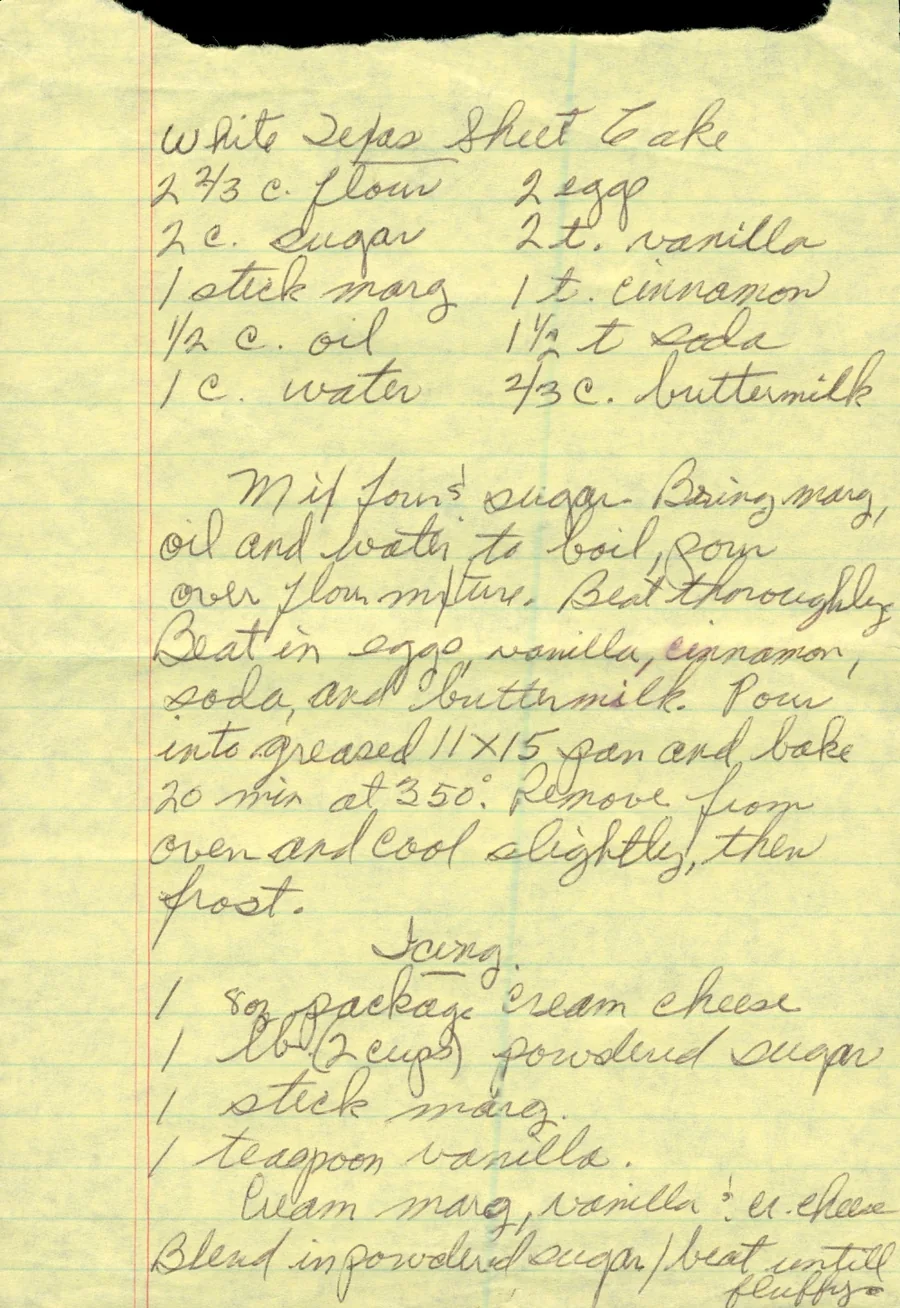 White Texas Sheet Cake
2 2/3 c. flour 2 eggs
2 c. sugar 2 t. vanilla
1 stick marg 1 t. cinnamon
1/2 c. oil 1 1/2 t soda
1 c. water 2/3 c. buttermilk
Mix four & sugar. Bring marg,
oil and water to boil, pour
over flour mixture. Beat thoroughly
Beat in eggs, vanilla, cinnamon,
soda, and buttermilk. Pour
into greased 11x15 pan and bake
20 min at 350°. Remove from
oven and cool slightly, then
frost.
Icing.
1 8 oz package cream cheese
1 lb (2 cups) powdered sugar
1 stick marg.
1 teaspoon vanilla.
Cream marg, vanilla & cr. cheese
Blend in powdered sugar / beat untill
fluffy.